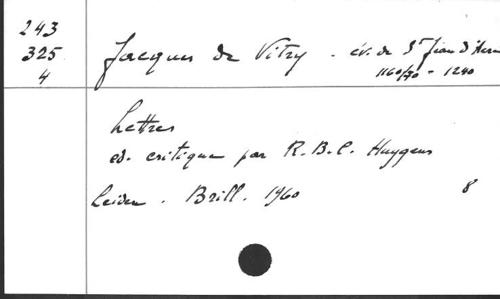 243
325
4
Jacques de Vitry - év. de St Jean d'Acre
1160/70 - 1240
Lettres
ed. critique par R.B.C. Huygens
Leiden. Brill. 1960
8